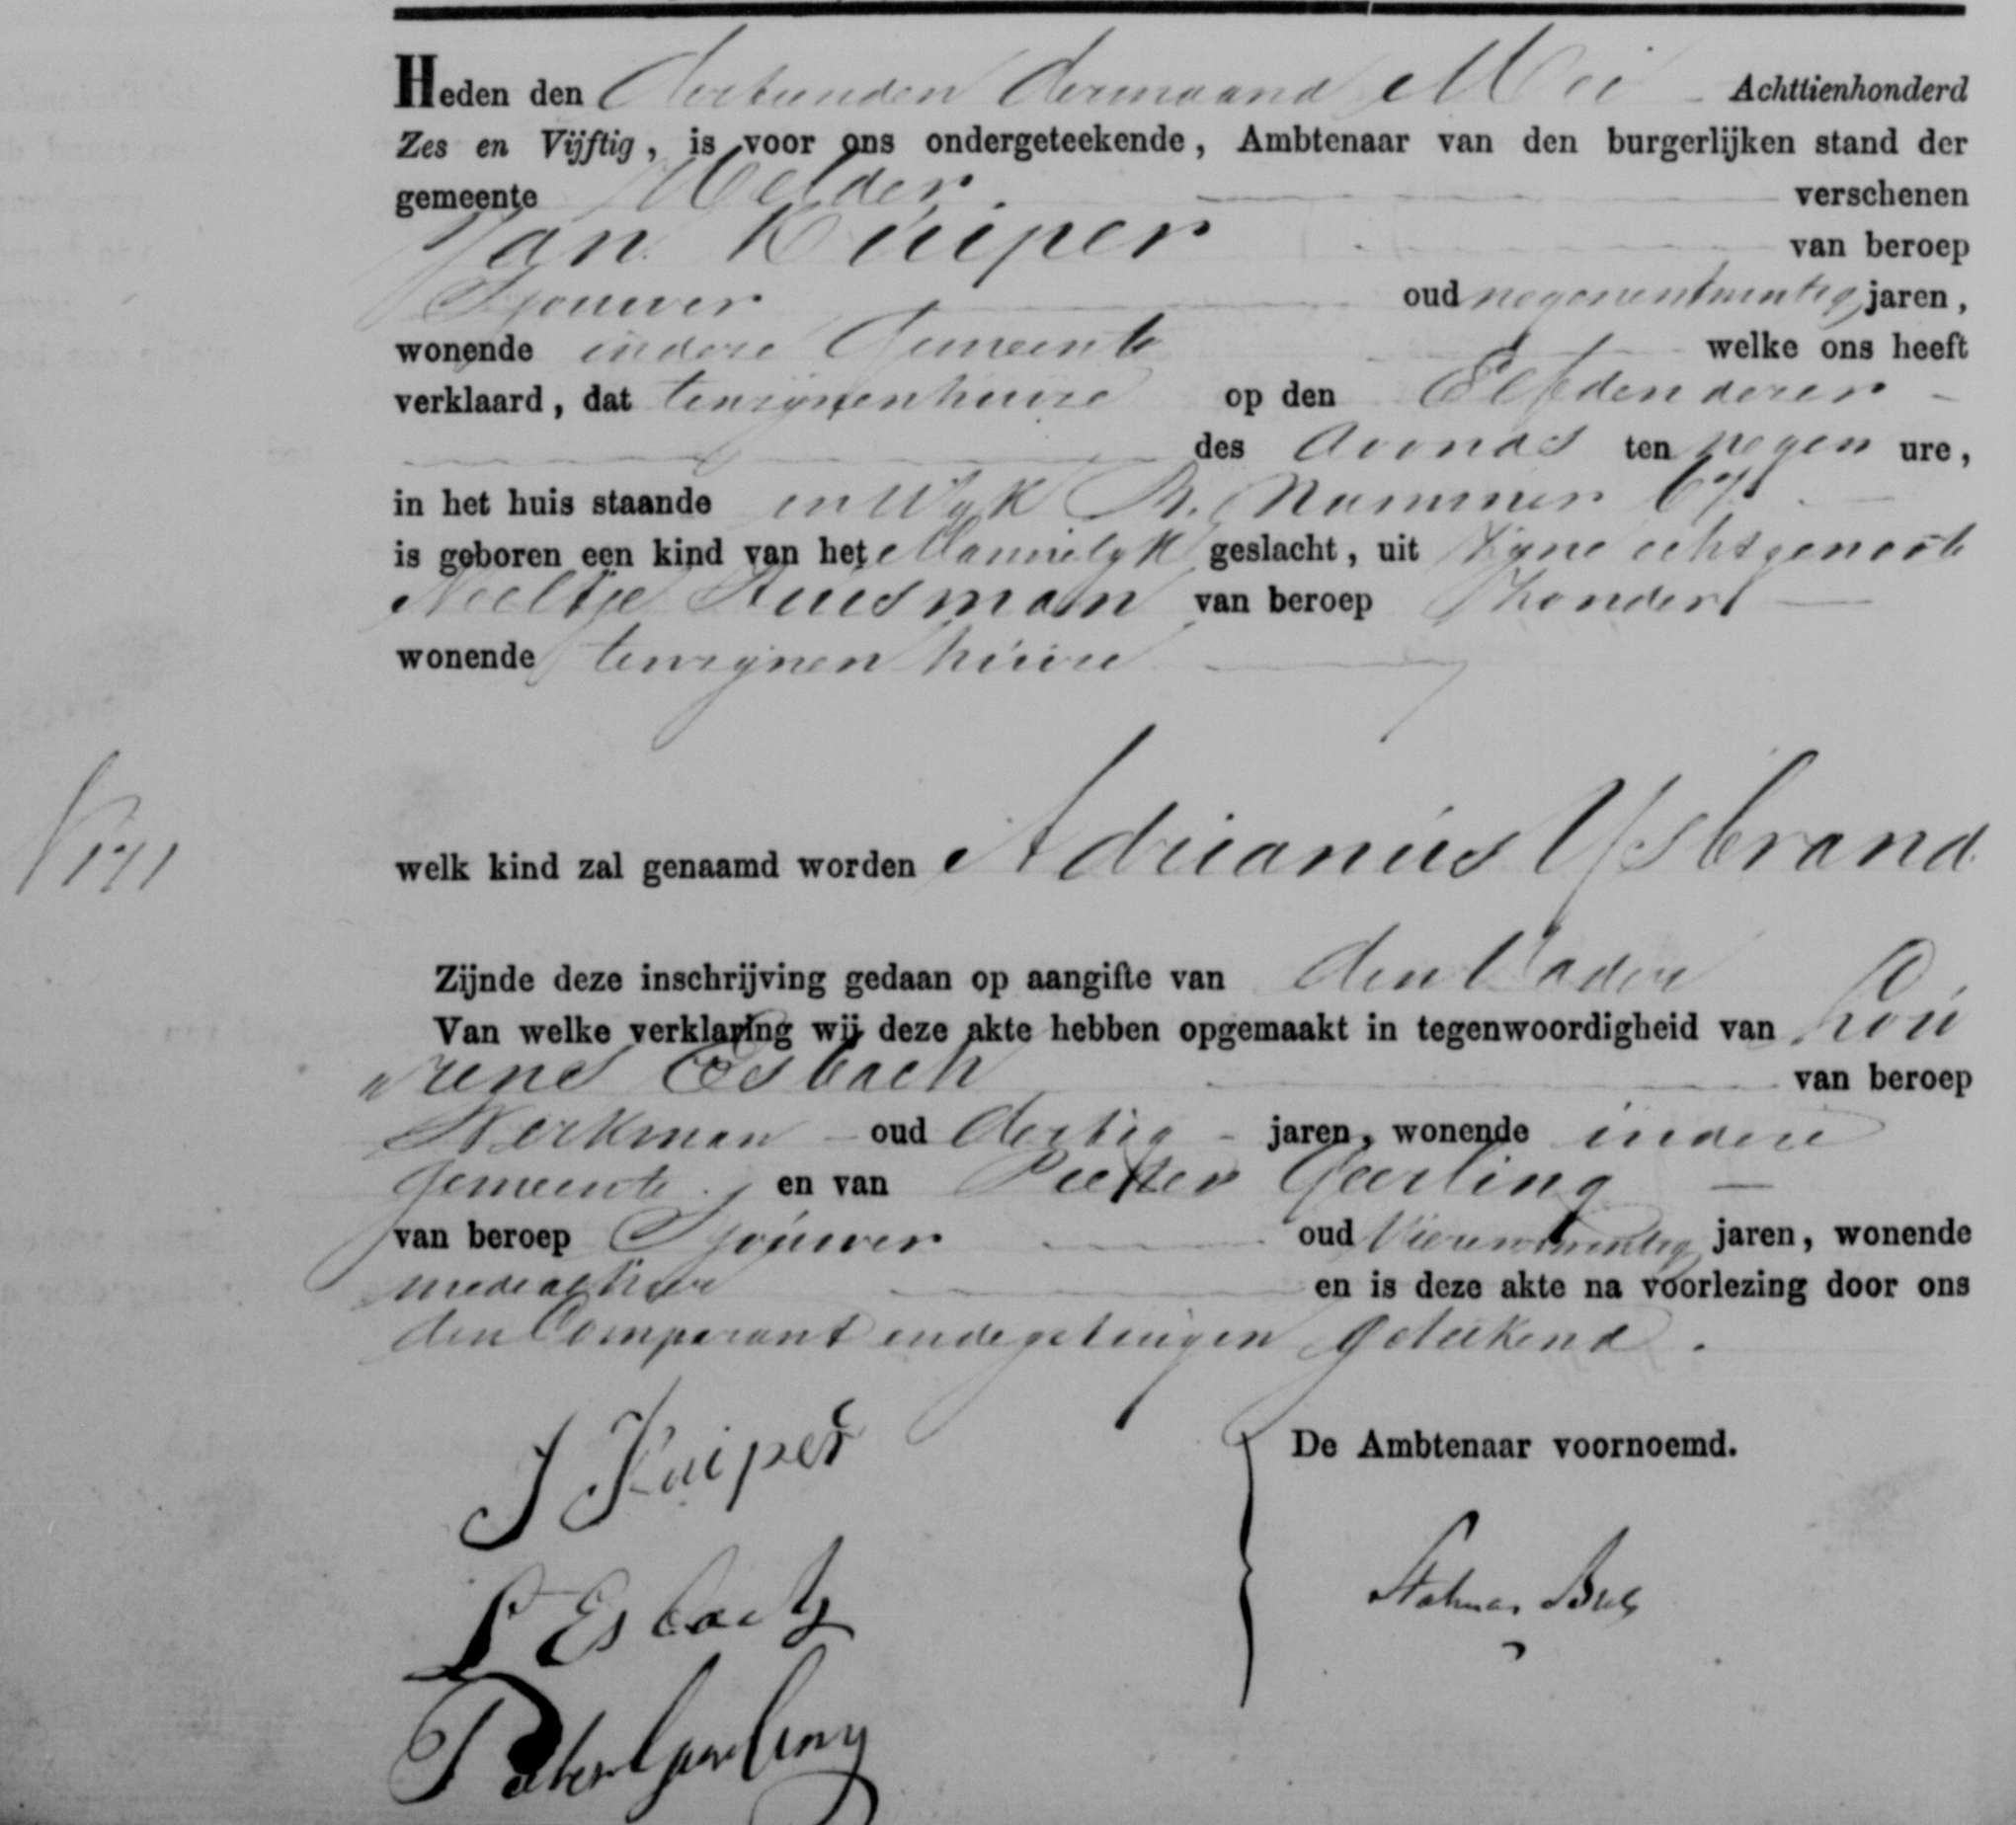 Heden den dertienden dermaand Mei Achttienhonderd
Zes en Vijftig, is voor ons ondergeteekende, Ambtenaar van den burgerlijken stand der
gemeente Helder. verschenen
Jan Kuiper van beroep
Sjouwer oud negenentwintig jaren,
wonende indeze Gemeente welke ons heeft
verklaard, dat tenzijnenhuize op den Elfden dezer
des avonds ten negen ure,
in het huis staande in Wyk B. Nummer 67
is geboren een kind van het Mannelyk geslacht, uit Zyne echtgenoote
Neeltje Huisman van beroep Zonder
wonende tenzijnen huize
171
welk kind zal genaamd worden Adrianus Ysbrand
Zijnde deze inschrijving gedaan op aangifte van den Vader
Van welke verklaring wij deze akte hebben opgemaakt in tegenwoordigheid van Lou
"rens Esbach van beroep
Werkman oud dertig jaren, wonende indeze
Gemeente, en van Pieter Geerling
van beroep Sjouwer oud Vierentwintig jaren, wonende
mede alhier en is deze akte na voorlezing door ons
den Comparant endegetuigen geteekend.
J Kuiper
De Ambtenaar voornoemd.
L Esbach
Pieter Geerling